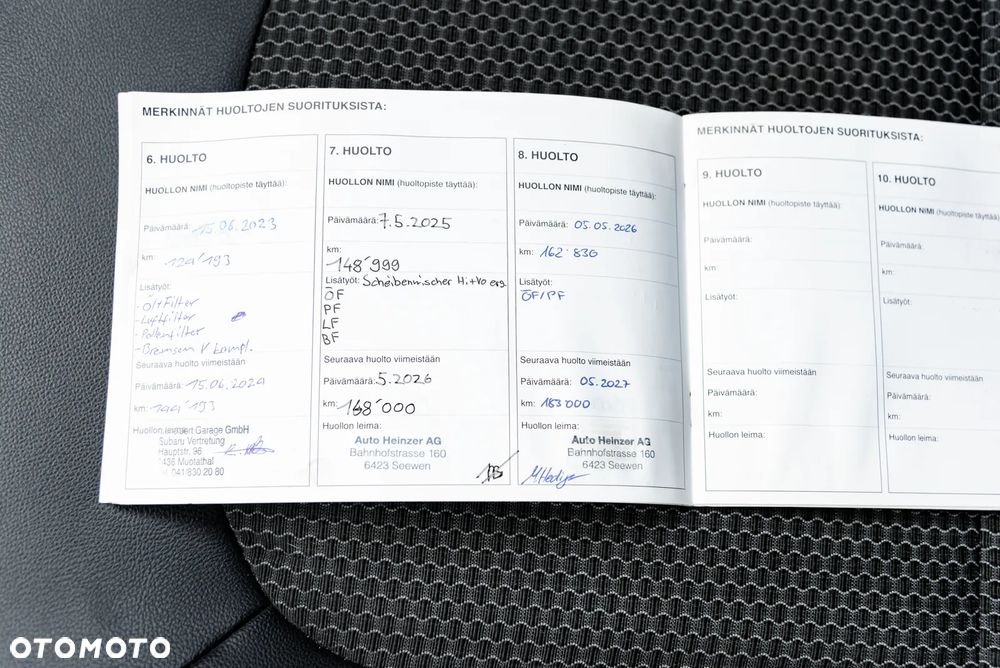 MERKINNÄT HUOLTOJEN SUORITUKSISTA:
6. HUOLTO
HUOLLON NIMI (huoltopiste täyttää):
Päivämäärä: 15.06.2023
km: 129'193
Lisätyöt:
- Öl+Filter
- Luftfilter
- Pollenfilter
- Bremsen V kompl.
Seuraava huolto viimeistään
Päivämäärä: 15.06.2024
km: 144'193
Huollon leima:
Garage GmbH
Subaru Vertretung
Hauptstr. 96
6436 Muotathal
041 830 20 80
7. HUOLTO
HUOLLON NIMI (huoltopiste täyttää):
Päivämäärä: 7.5.2025
km:
148'999
Lisätyöt: Scheibenwischer Hi+Vo ers
ÖF
PF
LF
BF
Seuraava huolto viimeistään
Päivämäärä: 5.2026
km: 168'000
Huollon leima:
Auto Heinzer AG
Bahnhofstrasse 160
6423 Seewen
8. HUOLTO
HUOLLON NIMI (huoltopiste täyttää):
Päivämäärä: 05.05.2026
km: 162'830
Lisätyöt:
ÖF/PF
Seuraava huolto viimeistään
Päivämäärä: 05.2027
km: 183'000
Huollon leima:
Auto Heinzer AG
Bahnhofstrasse 160
6423 Seewen
MERKINNÄT HUOLTOJEN SUORITUKSISTA:
9. HUOLTO
HUOLLON NIMI (huoltopiste täyttää):
Päivämäärä:
km:
Lisätyöt:
Seuraava huolto viimeistään
Päivämäärä:
km:
Huollon leima:
10. HUOLTO
HUOLLON NIMI (huoltopiste täyttää):
Päivämäärä:
km:
Lisätyöt:
Seuraava huolto viimeistään
Päivämäärä:
km:
Huollon leima:
OTOMOTO